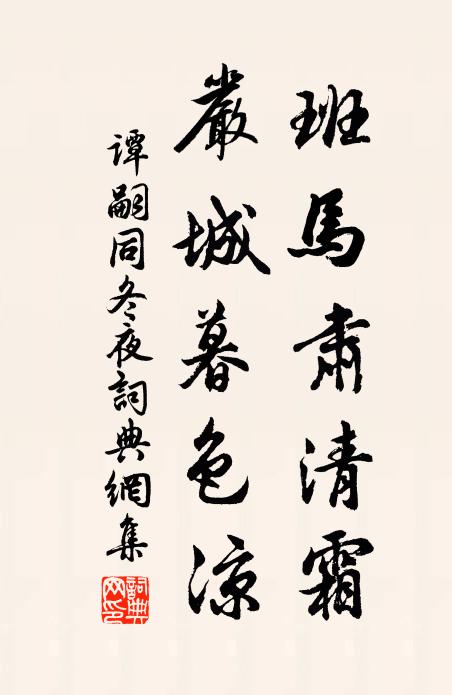 班馬肅清霜
嚴城暮色涼
谭嗣同冬夜詞典網集
詞典网印